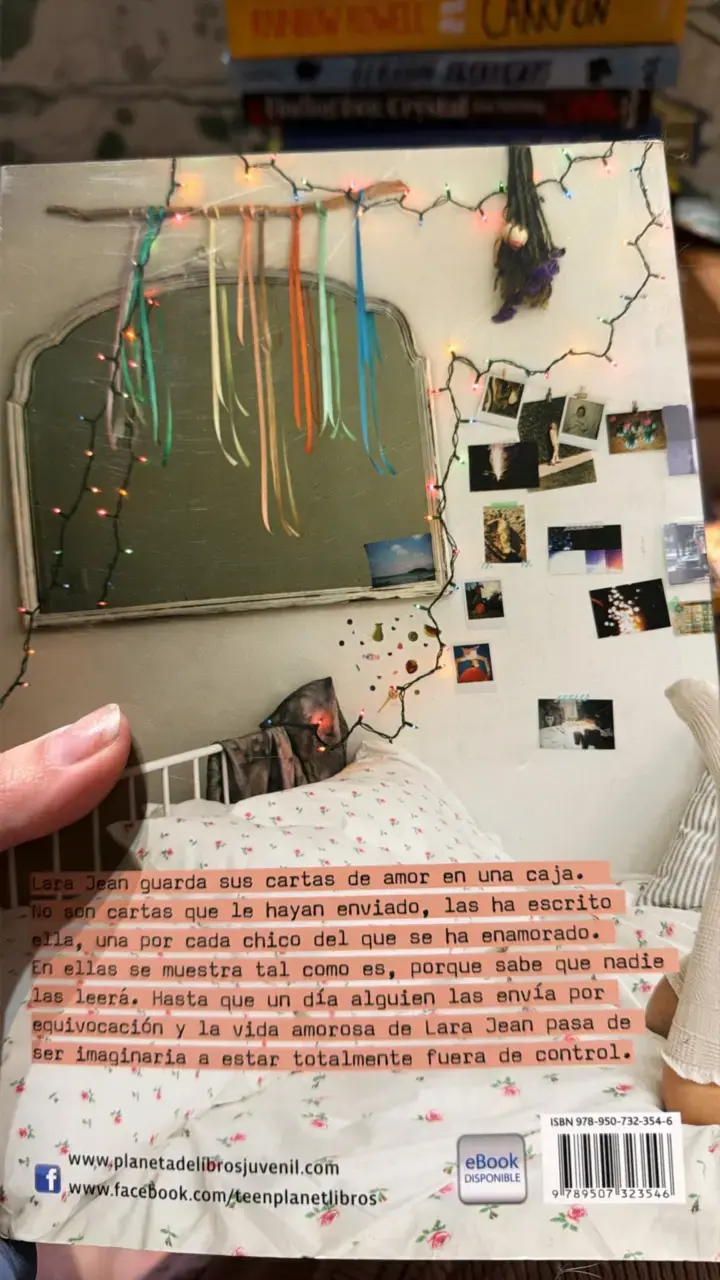 RAINBOW ROWELL
CARRY ON
Lara Jean guarda sus cartas de amor en una caja.
No son cartas que le hayan enviado, las ha escrito
ella, una por cada chico del que se ha enamorado.
En ellas se muestra tal como es, porque sabe que nadie
las leerá. Hasta que un día alguien las envía por
equivocación y la vida amorosa de Lara Jean pasa de
ser imaginaria a estar totalmente fuera de control.
www.planetadelibrosjuvenil.com
f
www.facebook.com/teenplanetlibros
eBook
DISPONIBLE
ISBN 978-950-732-354-6
9 789507 323546